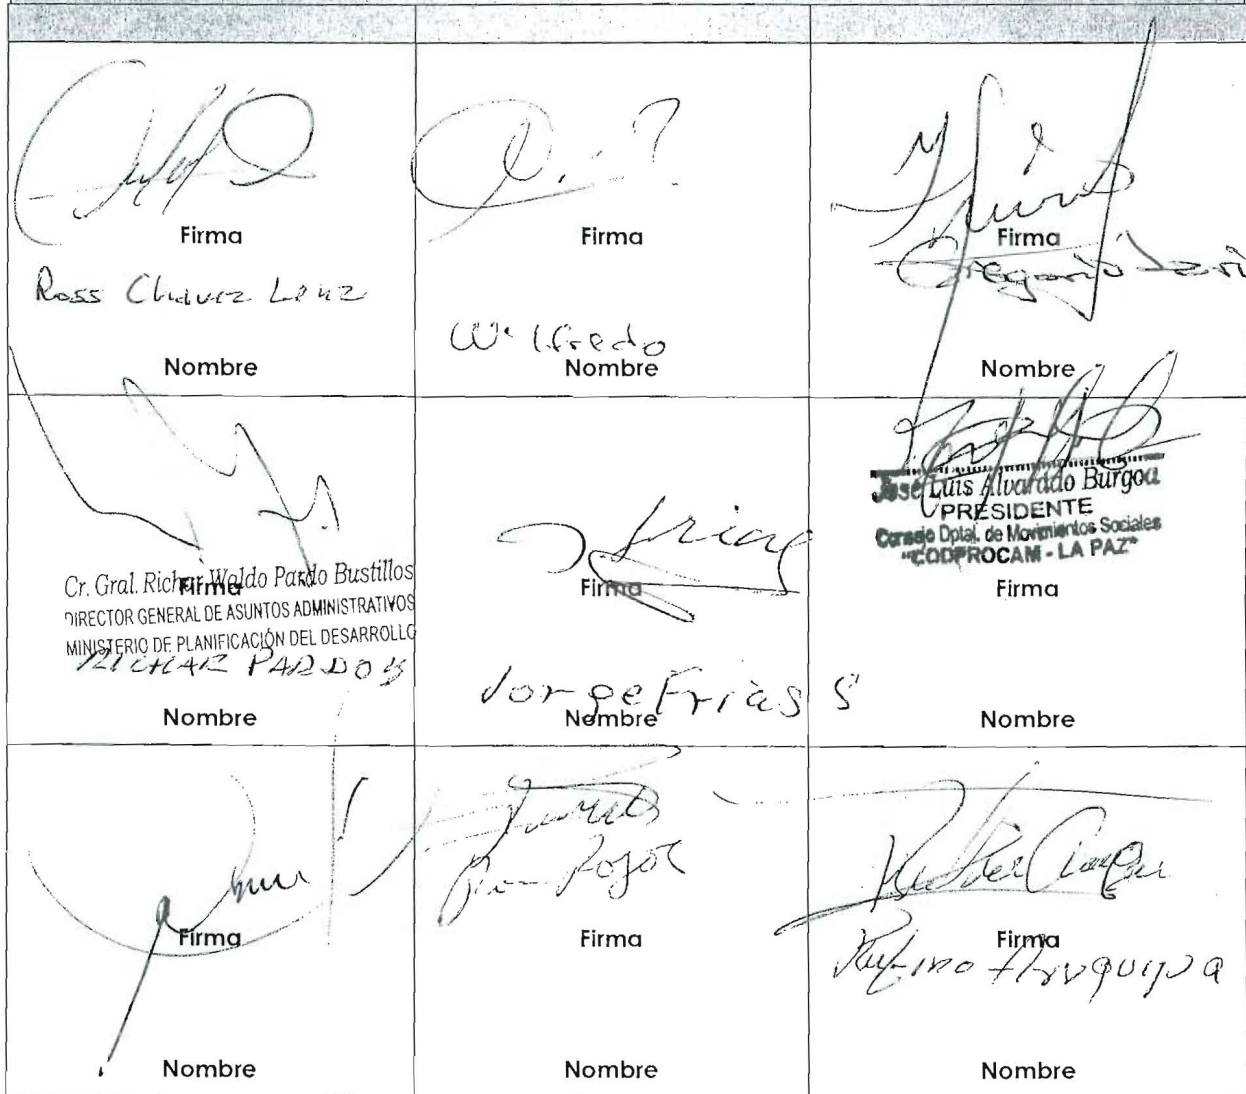 Firma
Ross Chavez Lenz
Nombre
Firma
Wilfredo
Nombre
Firma
Gregorio
Nombre
Cr. Gral. Richar Waldo Pardo Bustillos
Firma
DIRECTOR GENERAL DE ASUNTOS ADMINISTRATIVOS
MINISTERIO DE PLANIFICACIÓN DEL DESARROLLO
RICHAR PARDO B
Nombre
Firma
Jorge Frias S
Nombre
José Luis Alvarado Burgoa
PRESIDENTE
Consejo Dptal. de Movimientos Sociales
"CODPROCAM - LA PAZ"
Firma
Nombre
Firma
Nombre
Rojas
Firma
Nombre
Firma
Rufino Aruquipa
Nombre